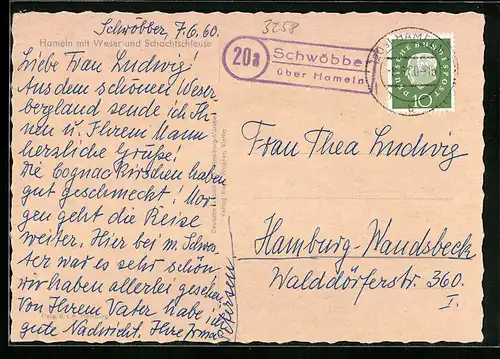 Schwöbber, 7.6.60.
Hameln mit Weser und Schachtschleuse
Liebe Frau Ludwig!
Aus dem schönen Weser-
bergland sende ich Ih-
nen u. Ihrem Mann
herzliche Grüße!
Die Cognackirschen haben
gut geschmeckt! Mor-
gen geht die Reise
weiter. Hier bei m. Schwes-
ter war es sehr schön
wir haben allerlei gesehen.
Von Ihrem Vater habe ich
gute Nachricht. Ihre Irma
Petersen
3258
20a
Schwöbber
über Hameln
HAMELN
DEUTSCHE BUNDESPOST
10
Frau Thea Ludwig
Hamburg-Wandsbeck
Walddörferstr. 360.
I.